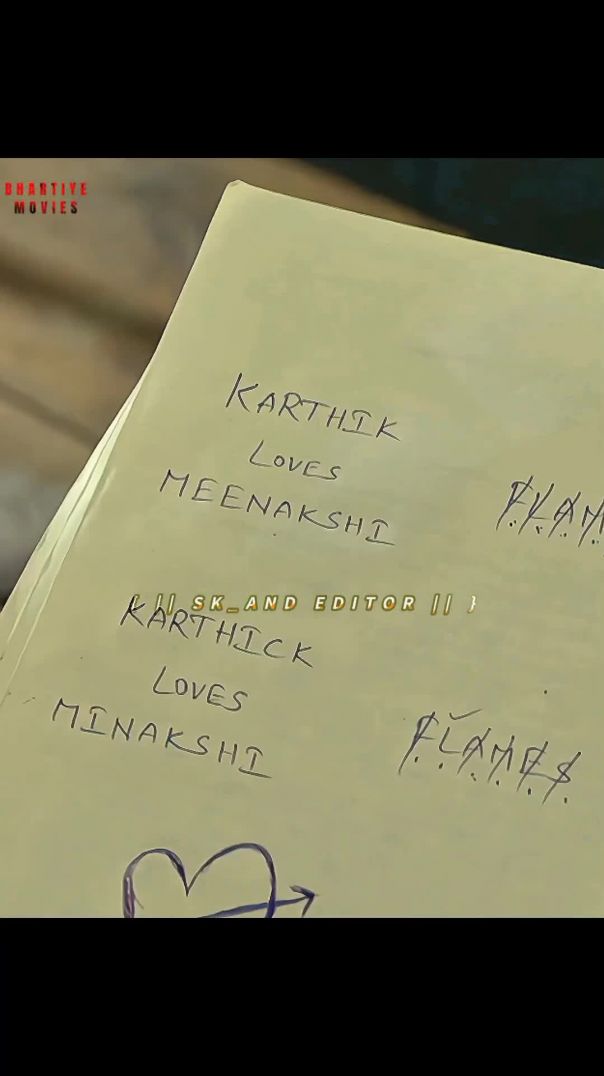 BHARTIYE
MOVIES
KARTHIK
LOVES
MEENAKSHI
FLAM
{ || SK_AND EDITOR || }
KARTHICK
LOVES
MINAKSHI
FLAMES